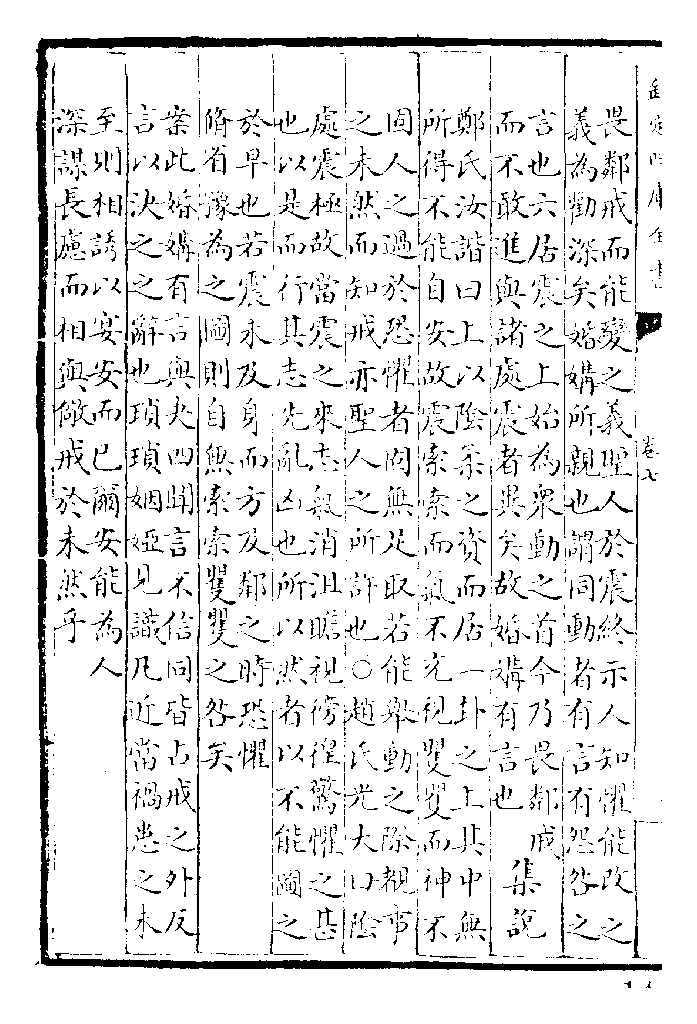 欽定四庫全書
卷七
畏鄰戒而能變之義聖人於震終示人知懼能改之
義為勸深矣婚媾所親也謂同動者有言有怨咎之
言也六居震之上始為衆動之首今乃畏鄰戒
而不敢進與諸處震者異矣故婚媾有言也
集說
鄭氏汝諧曰上以陰柔之資而居一卦之上其中無
所得不能自安故震索索而氣不充視矍矍而神不
固人之過於恐懼者固無足取若能舉動之際覩事
之未然而知戒亦聖人之所許也○趙氏光大曰陰
處震極故當震之來志氣消沮瞻視徬徨驚懼之甚
也以是而行其志先亂凶也所以然者以不能圖之
於早也若震未及身而方及鄰之時恐懼
脩省豫為之圖則自無索索矍矍之咎矣
案此婚媾有言與夬四聞言不信同皆占戒之外反
言以決之之辭也瑣瑣姻婭見識凡近當禍患之未
至則相誘以宴安而已爾安能為人
深謀長慮而相與儆戒於未然乎